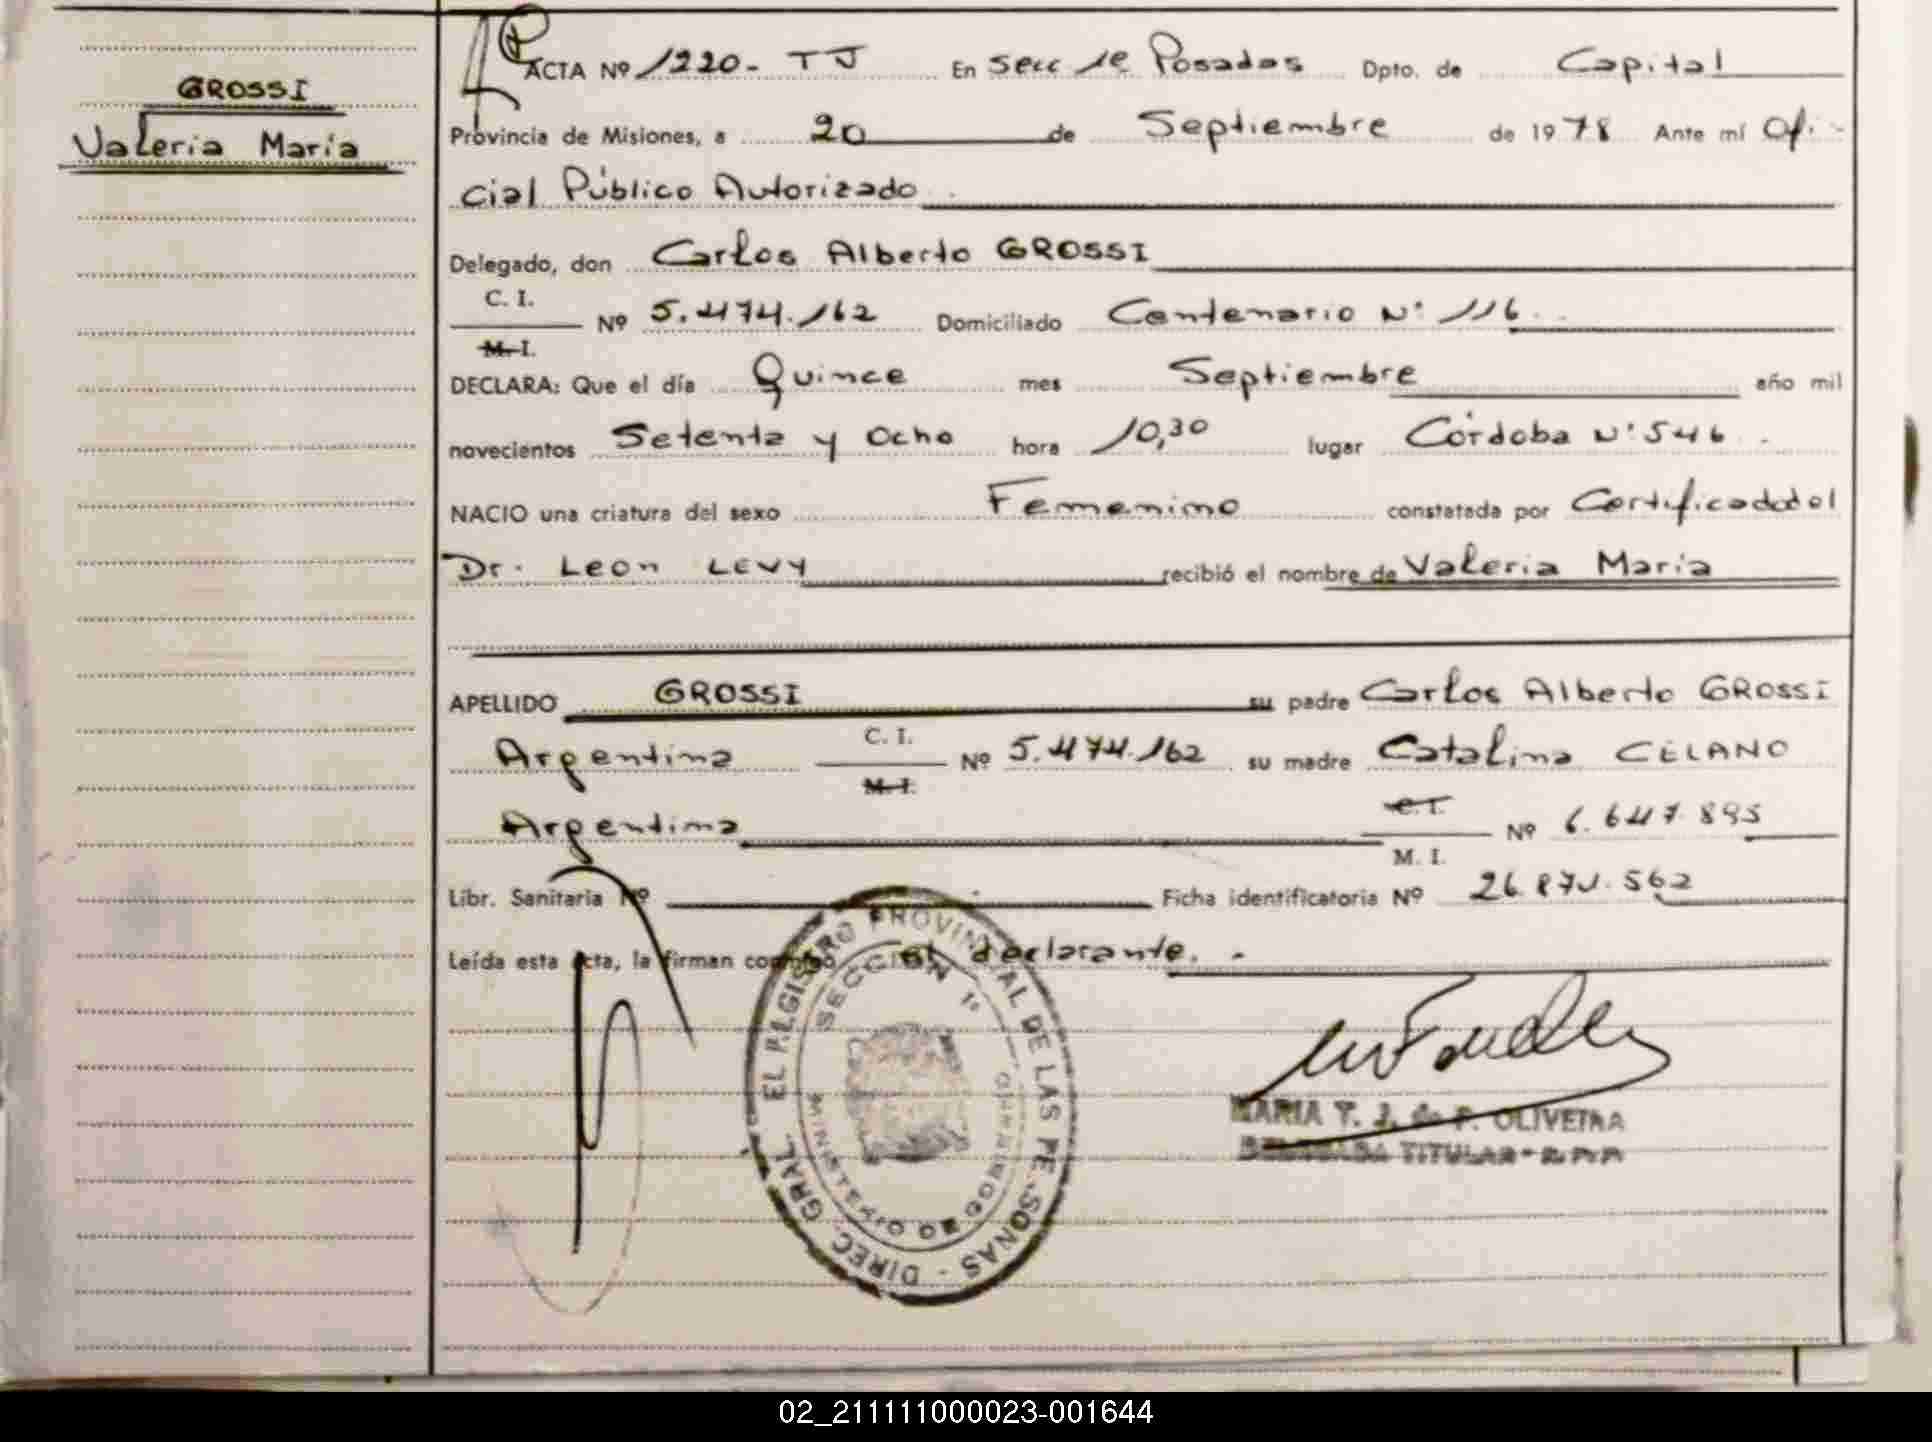 GROSSI
Valeria María
ACTA Nº 1220 - TJ En Secc 1e Posadas Dpto. de Capital
Provincia de Misiones, a 20 de Septiembre de 1978 Ante mí Ofi-
cial Público Autorizado
Delegado, don Carlos Alberto GROSSI
C. I.
Nº 5.474.162 Domiciliado Centenario Nº 116
M. I.
DECLARA: Que el día Quince mes Septiembre año mil
novecientos Setenta y Ocho hora 10,30 lugar Córdoba Nº 546
NACIO una criatura del sexo Femenino constatada por Certificado del
Dr. Leon LEVY recibió el nombre de Valeria María
APELLIDO GROSSI su padre Carlos Alberto GROSSI
Argentina C. I. Nº 5.474.162 su madre Catalina CELANO
M. I.
Argentina C. I. Nº 6.647.895
M. I.
Libr. Sanitaria Nº Ficha identificatoria Nº 26.871.562
Leída esta acta, la firman conmigo el declarante. -
DIREC. GRAL. EL REGISTRO PROVINCIAL DE LAS PERSONAS
SECCION 1º
MINISTERIO DE GOBIERNO
MARIA T. J. de P. OLIVEIRA
DELEGADA TITULAR - R.P.P.
02_211111000023-001644